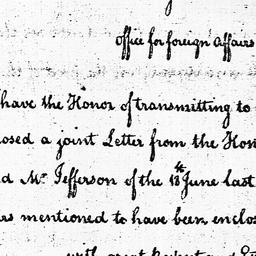 Office for foreign Affairs
have the Honor of transmitting to
osed a joint Letter from the Hon
d Mr Jefferson of the 18th June last
rs mentioned to have been enclos
with great Respect and